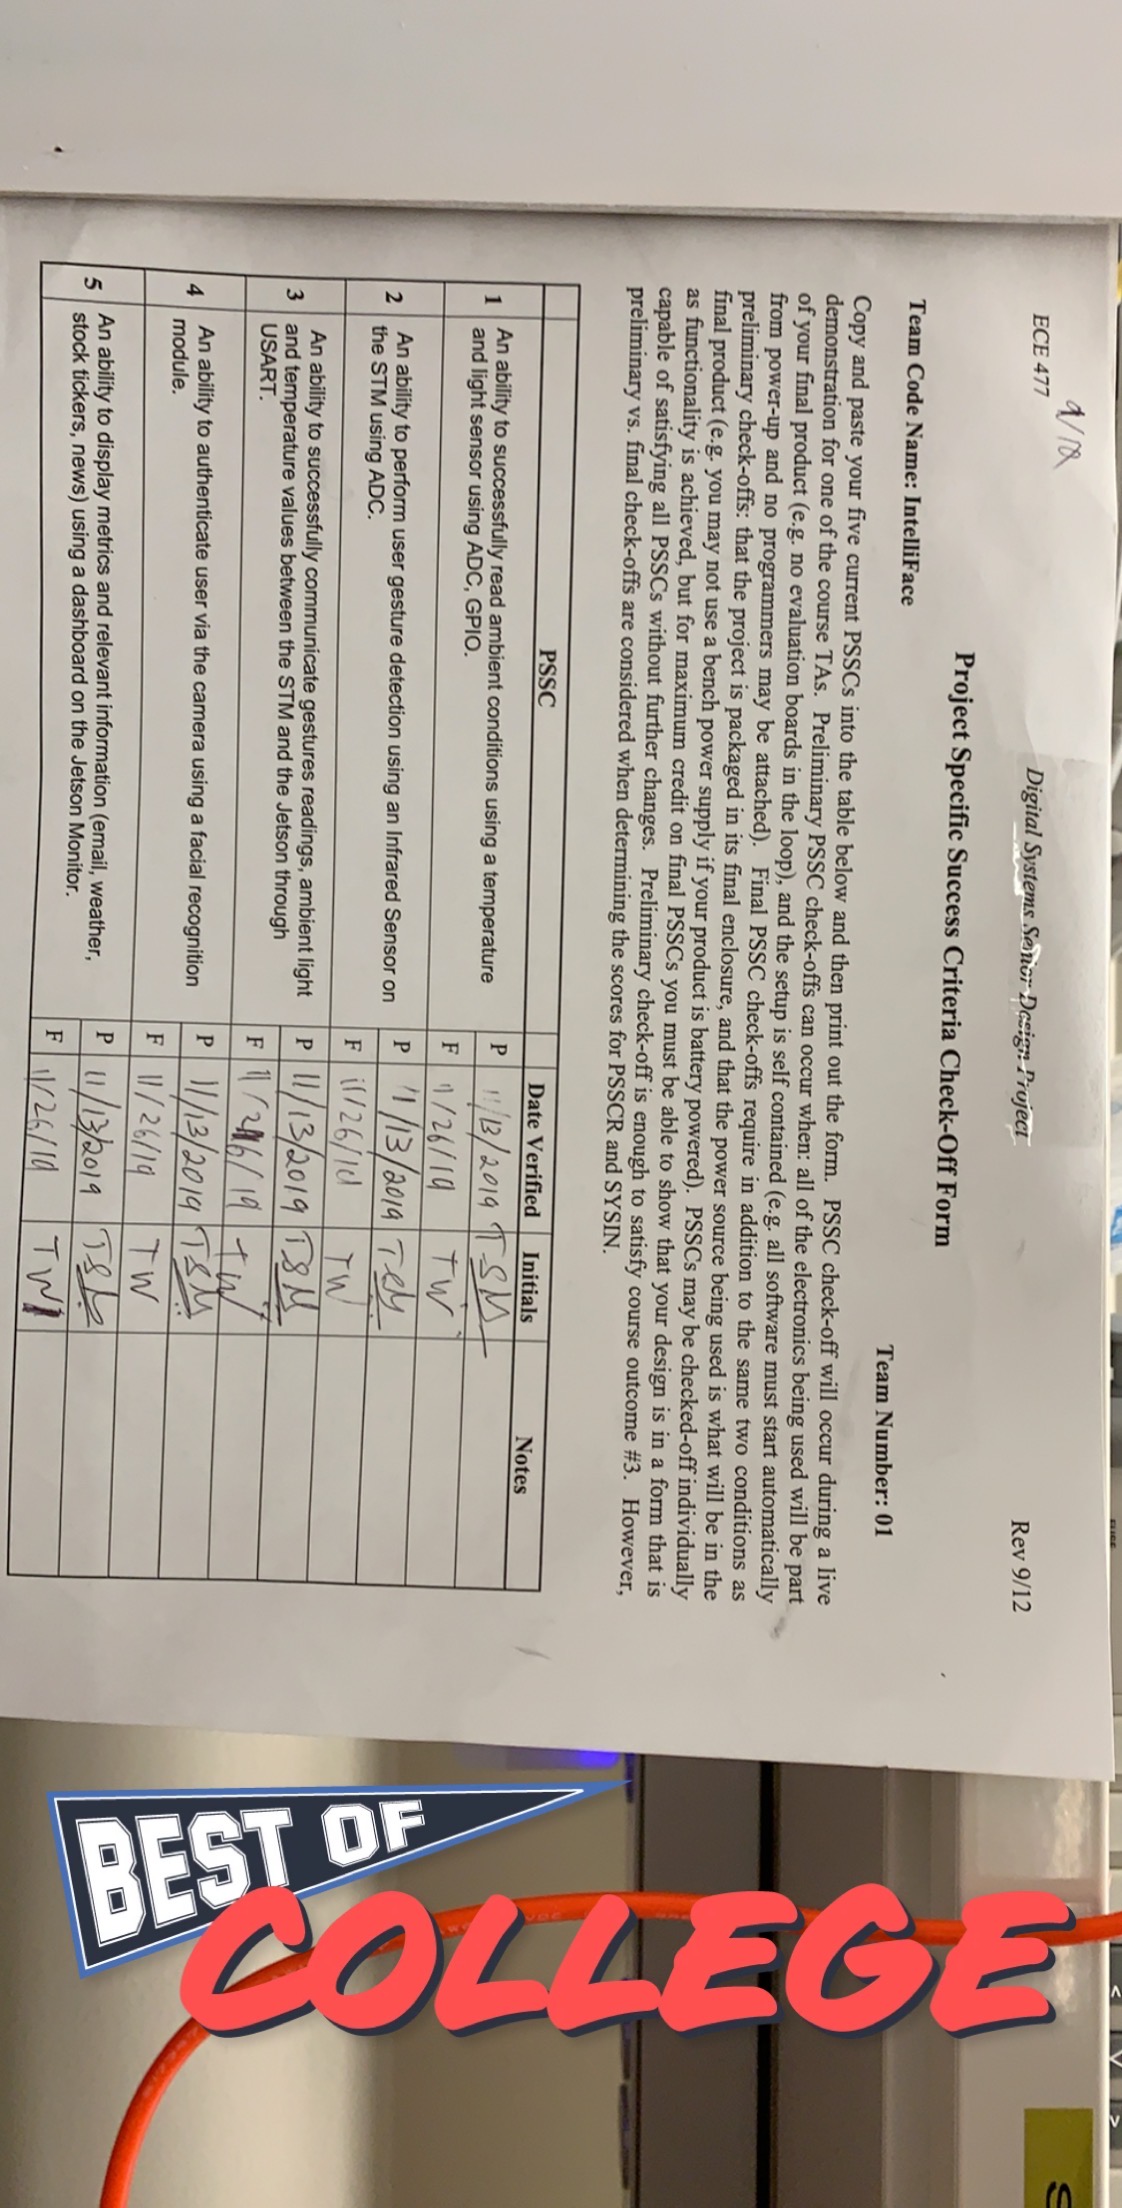 ECE 477
Digital Systems Senior Design Project
Rev 9/12
Project Specific Success Criteria Check-Off Form
Team Code Name: IntelliFace
Team Number: 01
Copy and paste your five current PSSCs into the table below and then print out the form. PSSC check-off will occur during a live
demonstration for one of the course TAs. Preliminary PSSC check-offs can occur when: all of the electronics being used will be part
of your final product (e.g. no evaluation boards in the loop), and the setup is self contained (e.g. all software must start automatically
from power-up and no programmers may be attached). Final PSSC check-offs require in addition to the same two conditions as
preliminary check-offs: that the project is packaged in its final enclosure, and that the power source being used is what will be in the
final product (e.g. you may not use a bench power supply if your product is battery powered). PSSCs may be checked-off individually
as functionality is achieved, but for maximum credit on final PSSCs you must be able to show that your design is in a form that is
capable of satisfying all PSSCs without further changes. Preliminary check-off is enough to satisfy course outcome #3. However,
preliminary vs. final check-offs are considered when determining the scores for PSSCR and SYSIN.
PSSC Date Verified Initials Notes
1 An ability to successfully read ambient conditions using a temperature
and light sensor using ADC, GPIO.
P 11/13/2019 TSM
F 11/26/19 TW
2 An ability to perform user gesture detection using an Infrared Sensor on
the STM using ADC.
P 11/13/2019 TSM
F 11/26/19 TW
3 An ability to successfully communicate gestures readings, ambient light
and temperature values between the STM and the Jetson through
USART.
P 11/13/2019 TSM
F 11/26/19 TW
4 An ability to authenticate user via the camera using a facial recognition
module.
P 11/13/2019 TSM
F 11/26/19 TW
5 An ability to display metrics and relevant information (email, weather,
stock tickers, news) using a dashboard on the Jetson Monitor.
P 11/13/2019 TSM
F 11/26/19 TW
BEST OF
COLLEGE